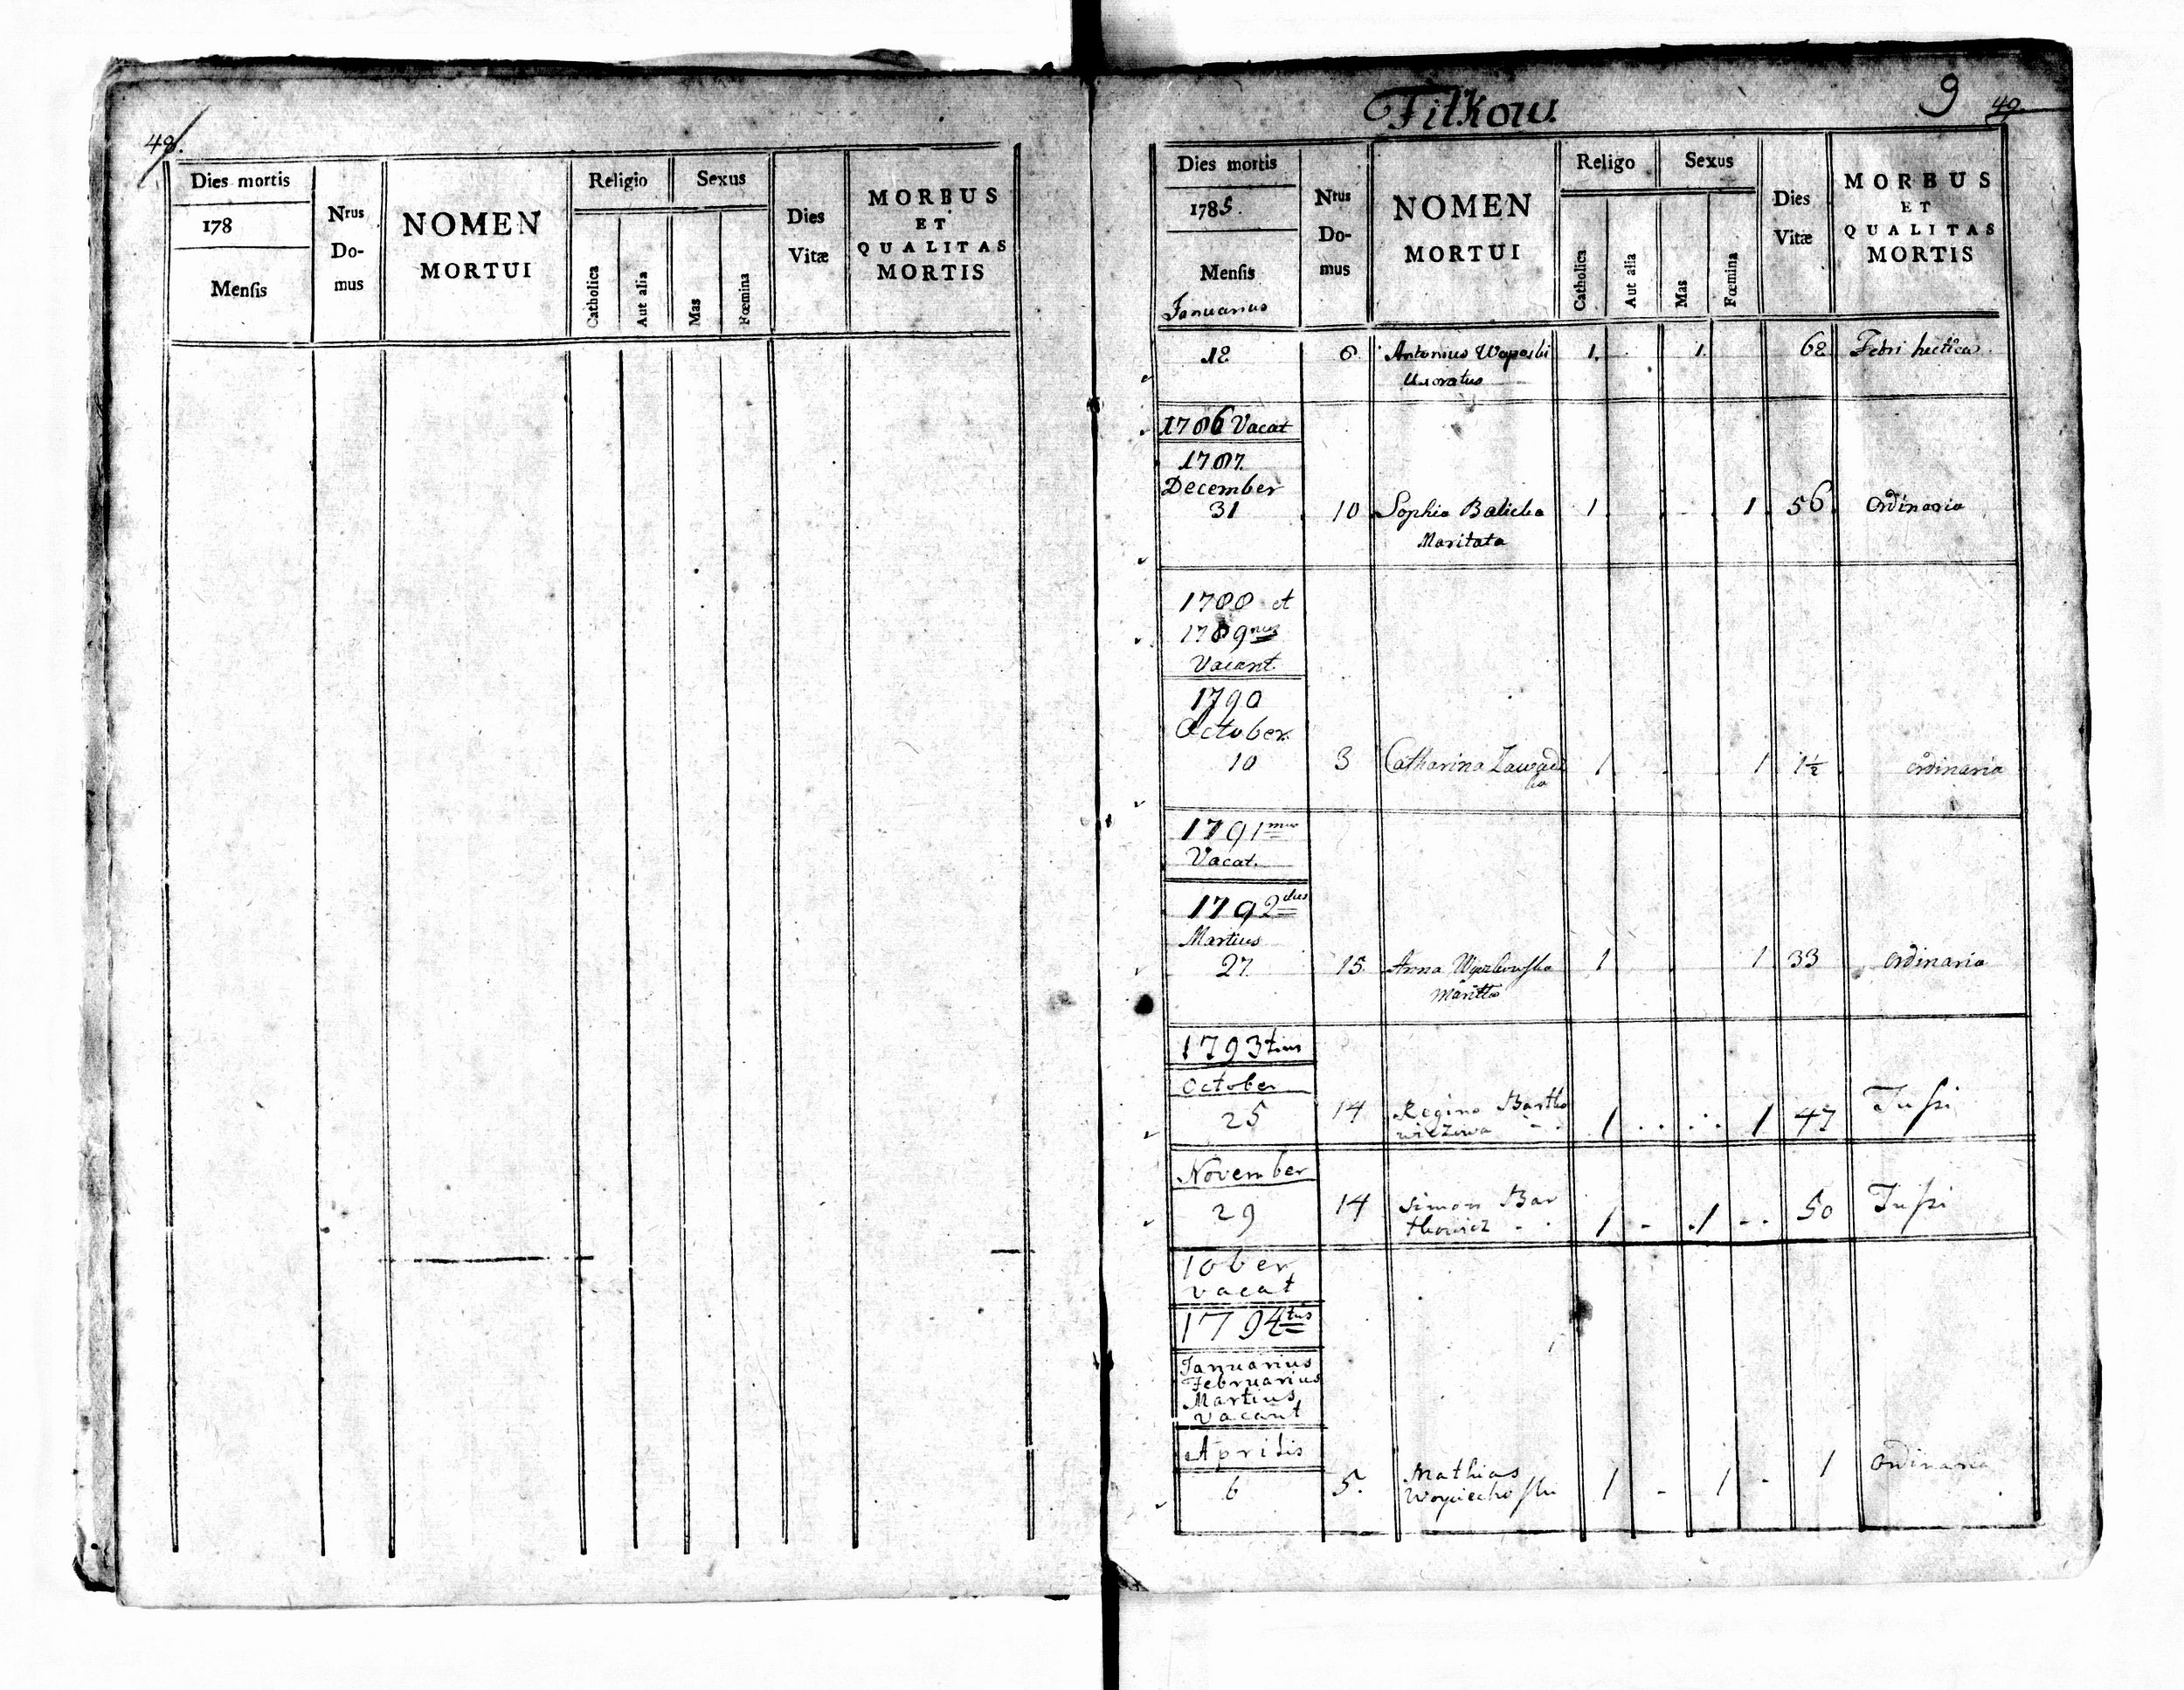 48.
Dies mortis
178
Menſis
Nrus
Do-
mus
NOMEN
MORTUI
Religio
Catholica
Aut alia
Sexus
Mas
Fœmina
Dies
Vitæ
MORBUS
ET
QUALITAS
MORTIS
Fitkow.
9 49.
Dies mortis
1785.
Menſis
Januarius
Nrus
Do-
mus
NOMEN
MORTUI
Religo
Catholica
Aut alia
Sexus
Mas
Fœmina
Dies
Vitæ
MORBUS
ET
QUALITAS
MORTIS
12 6. Antonius 1. 1. 62 Febri hectica.
Uxoratus
1786 Vacat
1787.
December
31 10 Sophia Balicka 1 1 56 Ordinaria
Maritata
1788 et
1789nus
Vacant
1790
October
10 3 Catharina Zawadz 1 1 1½ ordinaria
ka
1791mus
Vacat.
1792dus
Martius
27. 15. Anna 1 1 33 Ordinaria
Maritta
1793tius
October
25 14 Regina Bartko 1 . . . . 1 47 Tuſsi
wiczowa - .
November
29 14 Simon Bar 1 - . 1 - . 50 Tuſsi
tkowicz - .
10ber
vacat
1794tus
Januarius
Februarius
Martius
vacant
Aprilis
6 5. Mathias 1 - 1 - 1 Ordinaria
Woyciechoſki